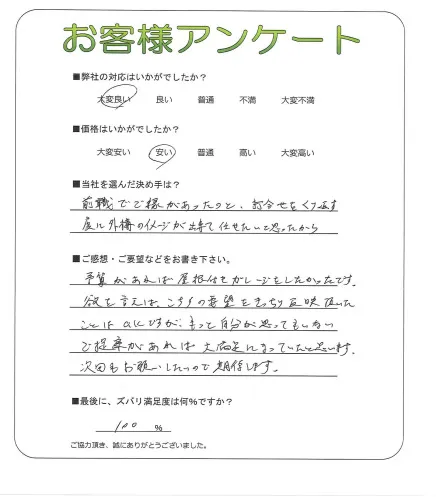 お客様アンケート
■弊社の対応はいかがでしたか？
大変良い 良い 普通 不満 大変不満
■価格はいかがでしたか？
大変安い 安い 普通 高い 大変高い
■当社を選んだ決め手は？
前職でご縁があったのと、打合せをくり返す
度に外構のイメージが出来て任せたいと思ったから
■ご感想・ご要望などをお書き下さい。
予算があれば屋根付きガレージをしたかったです。
欲を言えば、こちらの要望をきっちり反映頂いた
ことはOKですが、もっと自分が思ってもいない
ご提案があれば大満足になっていたと思います。
次回もお願いしたいので期待します。
■最後に、ズバリ満足度は何％ですか？
100 %
ご協力頂き、誠にありがとうございました。